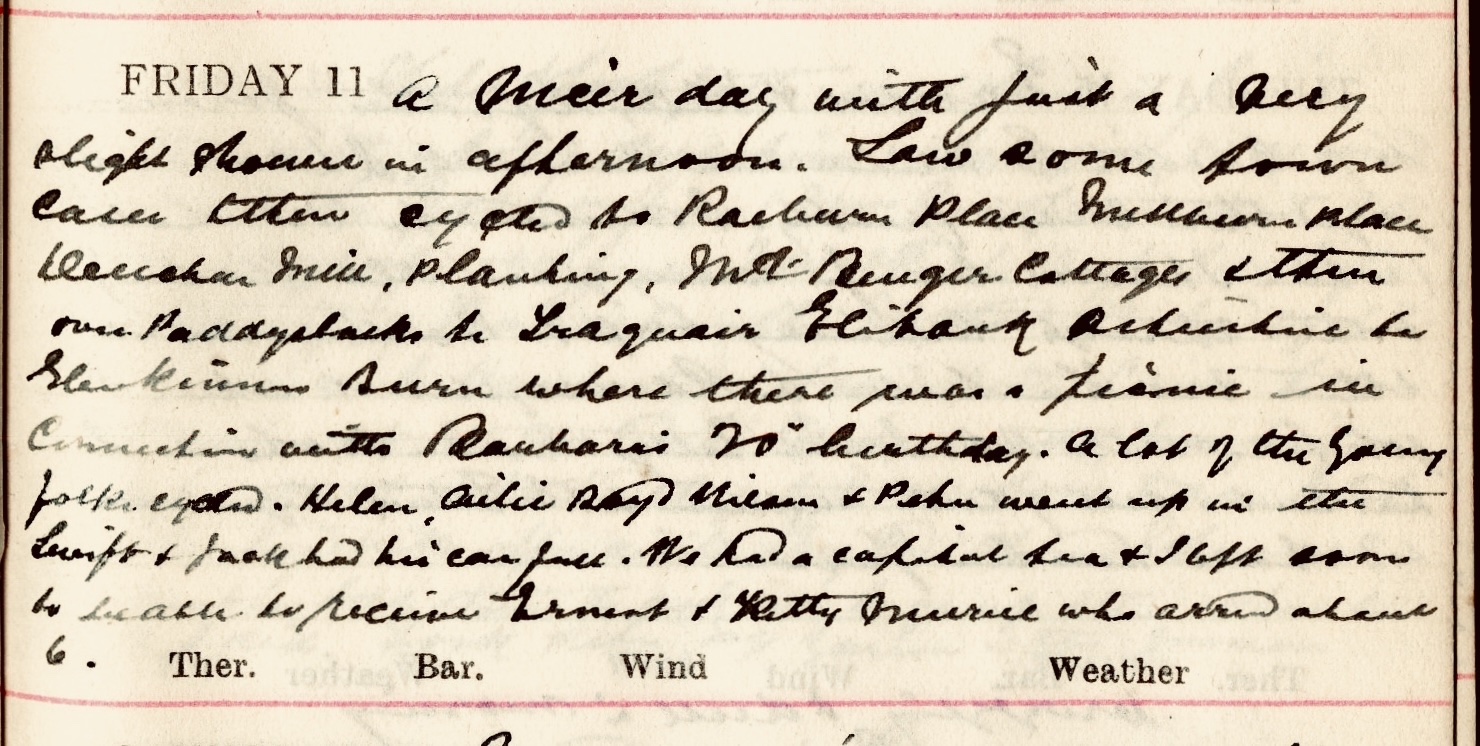 FRIDAY 11 A nicer day with just a very
slight shower in afternoon. Saw some town
cases then cycled to Raeburn Place Millburn Place
Deuchar Mill, Planting, Mt Benger Cottages & then
over Paddyslacks to Traquair Elibank Ashiestiel to
Glenkinnon Burn where there was a picnic in
Connection with Barbara's 20th birthday. A lot of the young
folks cycled. Helen, Ailie Boyd Wilson & Pehu went up in the
Swift & Jack had his car full. We had a capital tea & I left soon
to be able to receive Ernest & Kitty Murice who arrd about
6.
Ther. Bar. Wind Weather